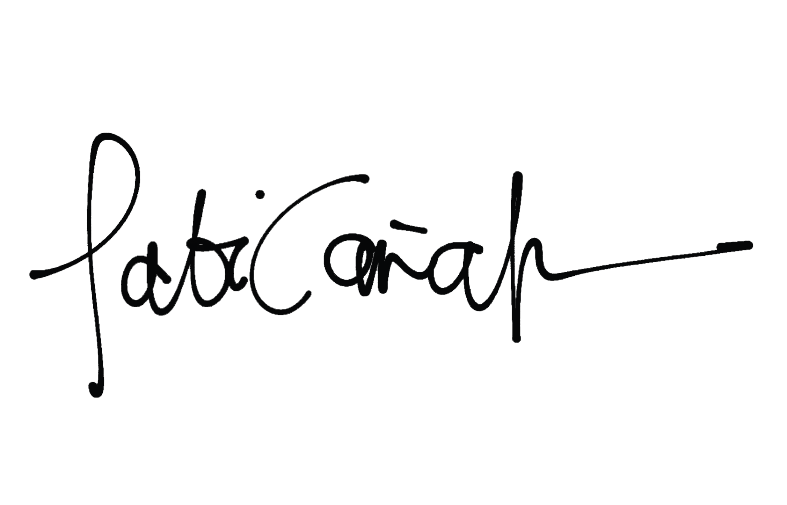 Pati Cañah